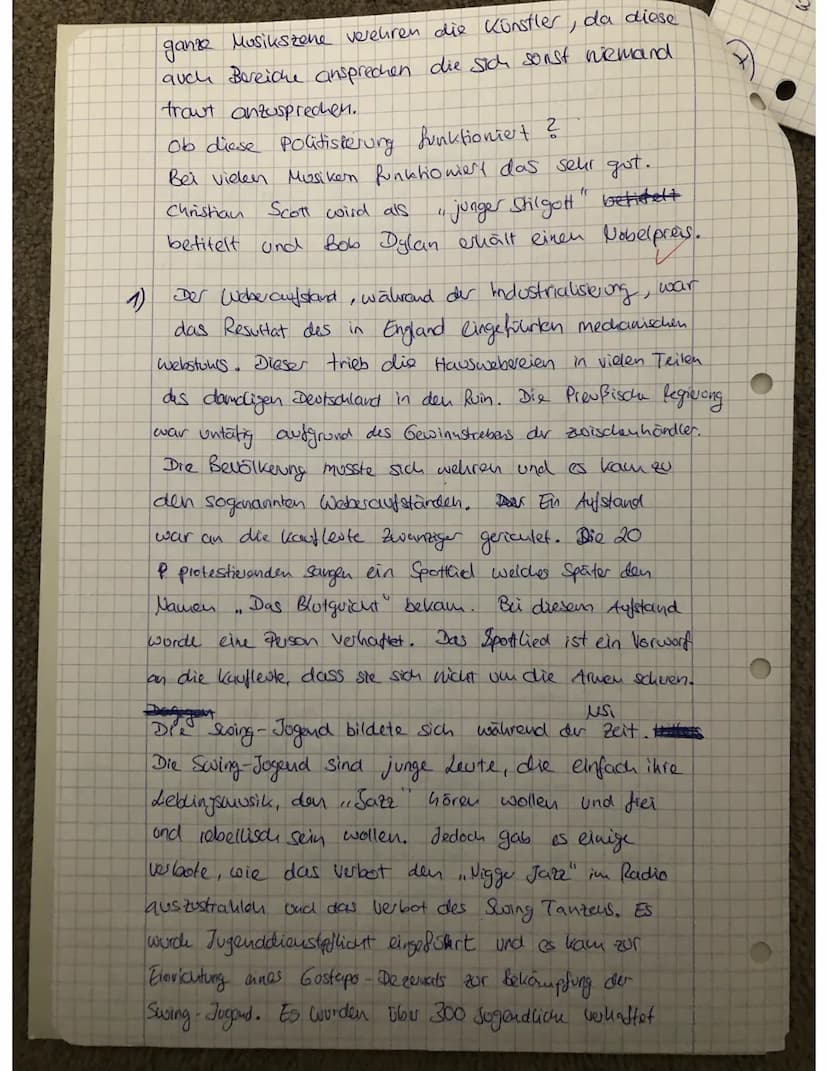 ganze Musikszene verehren die Künstler, da diese
auch Bereiche ansprechen die sich sonst niemand
traut anzusprechen.
Ob diese Politisierung funktioniert?
Bei vielen Musikern funktioniert das sehr gut.
Christian Scott wird als „junger Stilgott" betitelt
betitelt und Bob Dylan erhält einen Nobelpreis.
1) Der Weberaufstand, während der Industrialisierung, war
das Resultat des in England eingeführten mechanischen
Webstuhls. Dieser trieb die Hauswebereien in vielen Teilen
des damaligen Deutschland in den Ruin. Die Preußische Regierung
war untätig aufgrund des Gewinnstrebens der Zwischenhändler.
Die Bevölkerung musste sich wehren und es kam zu
den sogenannten Weberaufständen. Der Ein Aufstand
war an die Kaufleute Zwanziger gerichtet. Die 20
P protestierenden sangen ein Spottlied welches Später den
Namen „Das Blutgericht" bekam. Bei diesem Aufstand
wurde eine Person verhaftet. Das Spottlied ist ein Vorwurf
an die Kaufleute, dass sie sich nicht um die Armen scheren.
Dagegen
Die Swing-Jugend bildete sich während der NS Zeit.
Die Swing-Jugend sind junge Leute, die einfach ihre
Lieblingsmusik, den „Jazz" hören wollen und frei
und rebellisch sein wollen. Jedoch gab es einige
Verbote, wie das Verbot den „Nigger Jazz" im Radio
auszustrahlen und das Verbot des Swing Tanzens. Es
wurde Jugenddienstpflicht eingeführt und es kam zur
Einrichtung eines Gestapo-Dezernats zur Bekämpfung der
Swing-Jugend. Es wurden über 300 Jugendliche verhaftet